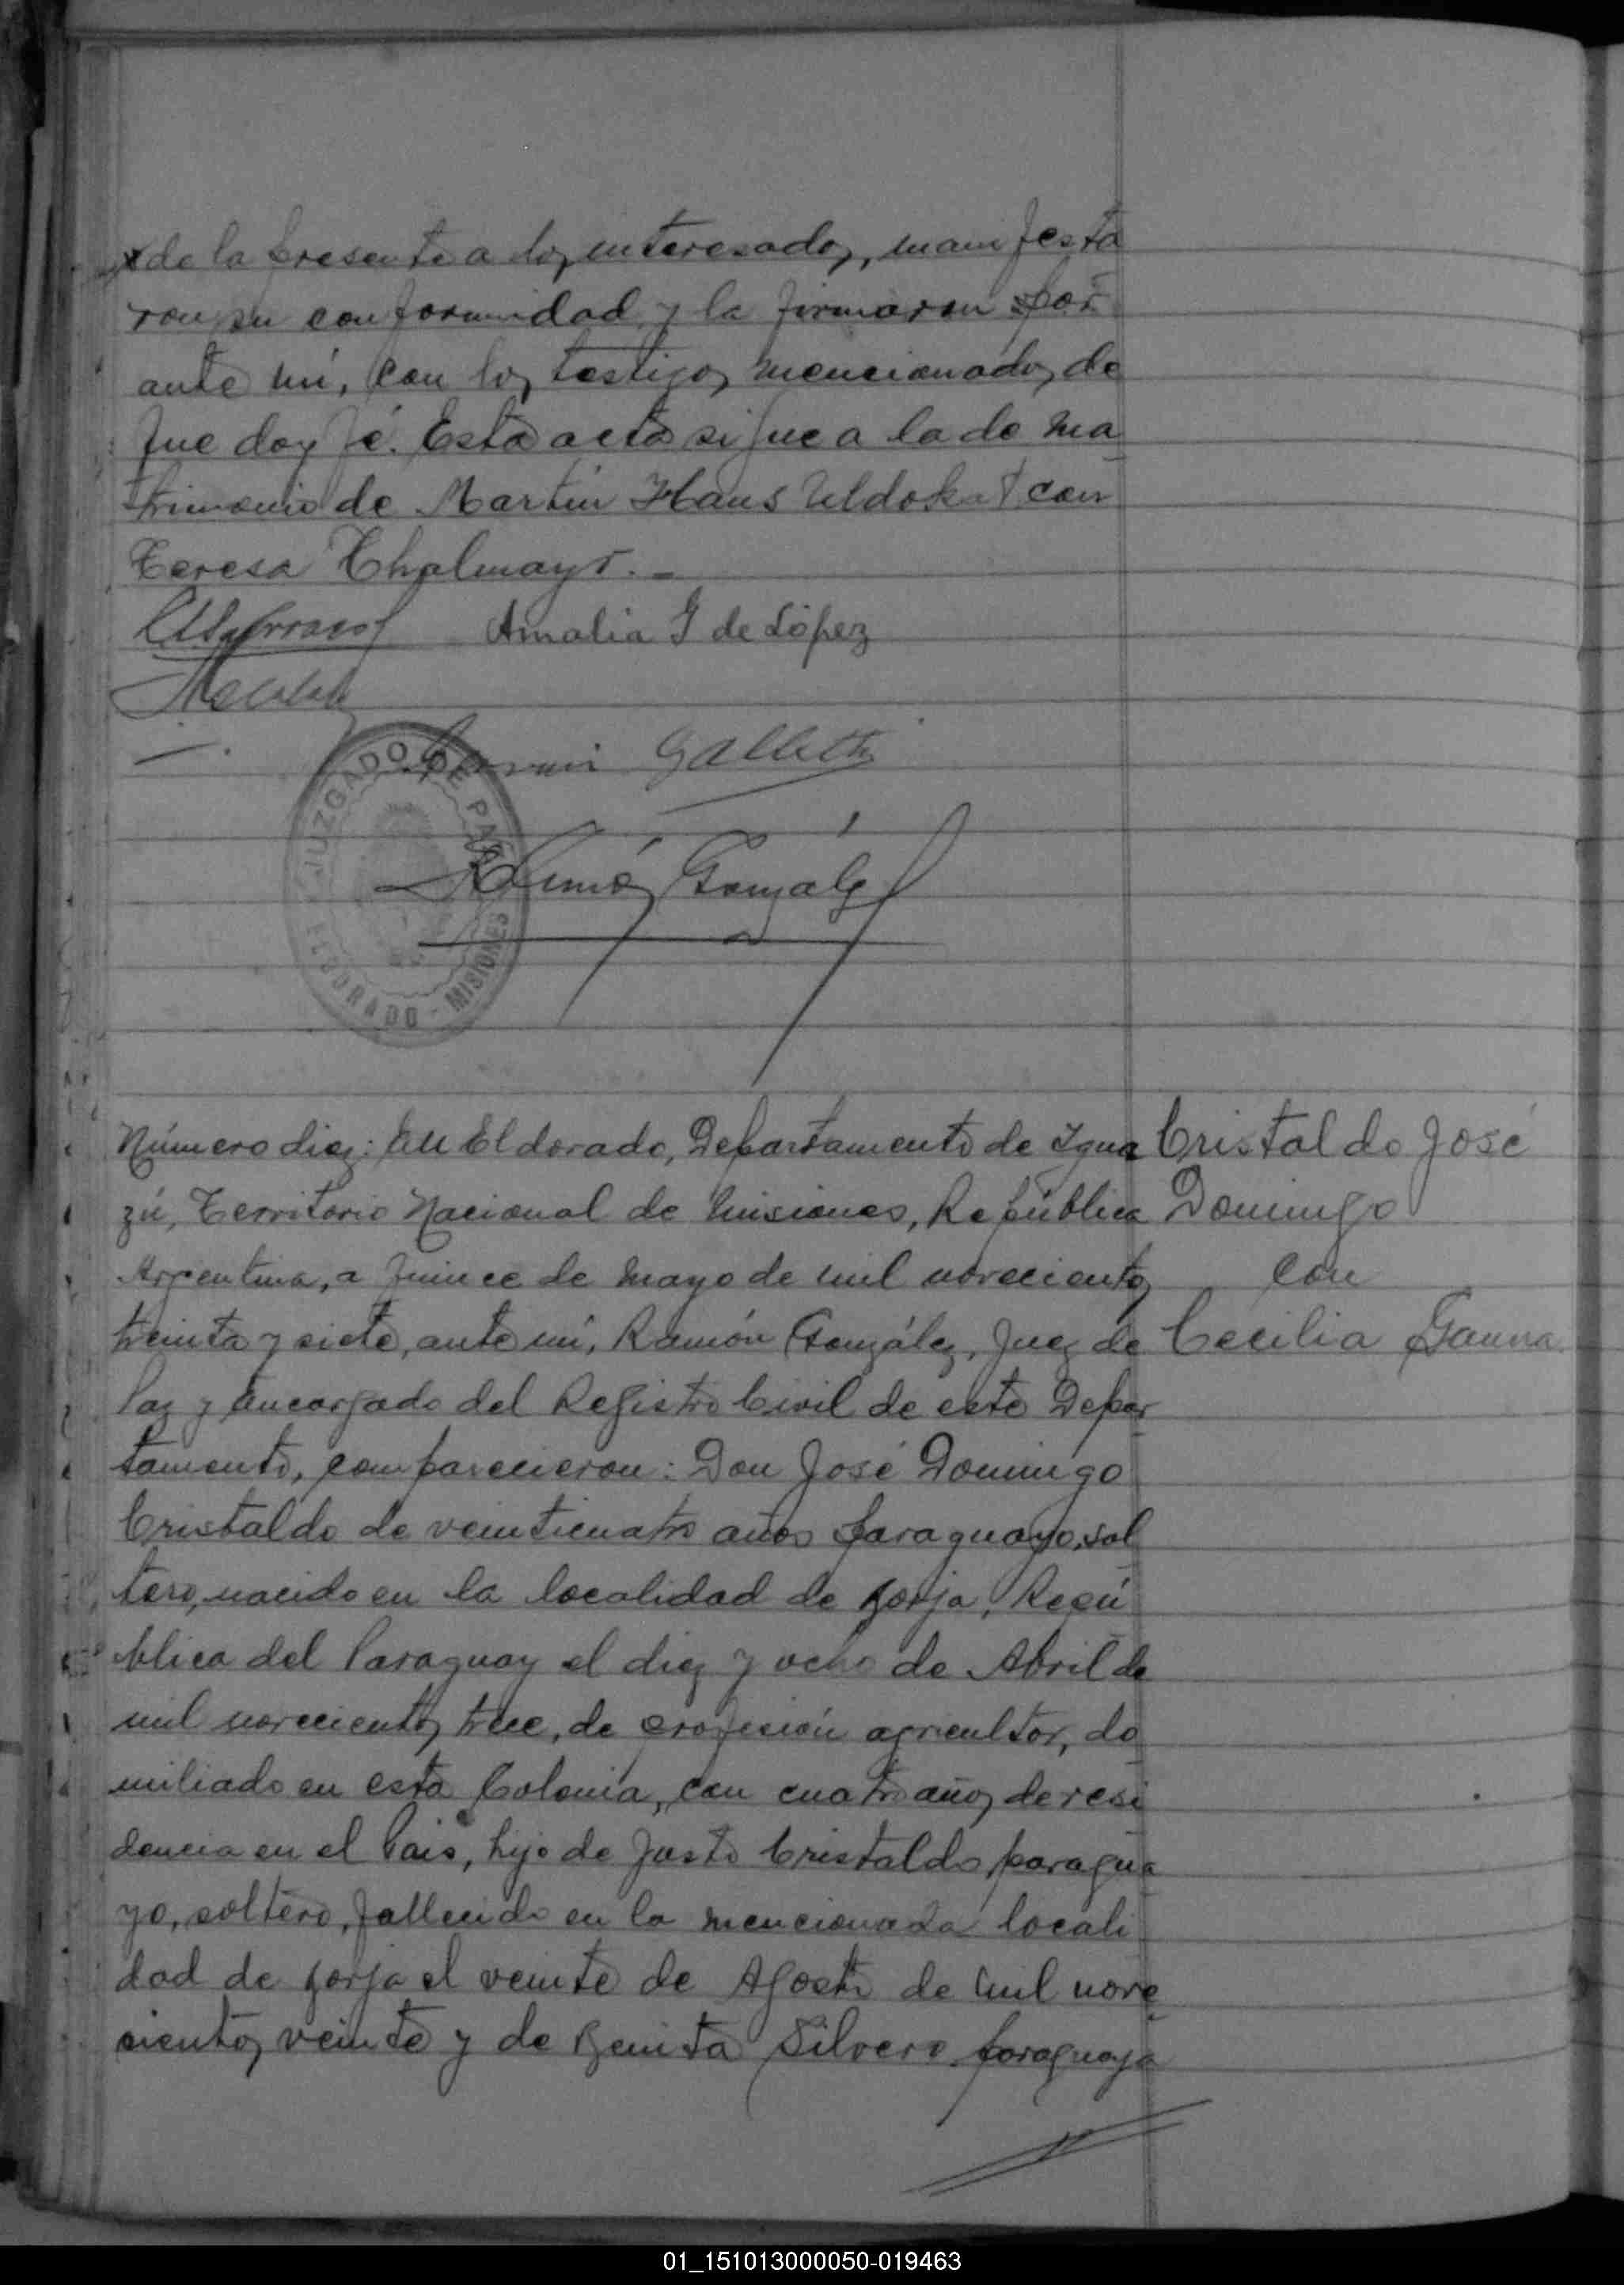 de la presente a los interesados, manifesta
ron su conformidad y la firmaron por
ante mí, con los testigos mencionados, de
que doy fé. Esta acta sigue a la de ma
trimonio de Martín Hans Uldokat con
Teresa Thalmayr.-
Amalia G de López
Galletti
Ramón González
JUZGADO DE PAZ
ELDORADO - MISIONES
Número diez: En Eldorado, Departamento de Igua
zú, Territorio Nacional de Misiones, República
Argentina, a quince de Mayo de mil novecientos
treinta y siete, ante mí, Ramón González, Juez de
Paz y Encargado del Registro Civil de este Depar
tamento, comparecieron: Don José Domingo
Cristaldo de veinticuatro años paraguayo, sol
tero, nacido en la localidad de Borja, Repú
blica del Paraguay el diez y ocho de Abril de
mil novecientos trece, de profesión agricultor, do
miliado en esta Colonia, con cuatro años de resi
dencia en el Pais, hijo de Justo Cristaldo, paragua
yo, soltero, fallecido en la mencionada locali
dad de Borja el veinte de Agosto de mil nove
cientos veinte y de Benita Silvero paraguaya
Cristaldo José
Domingo
con
Cecilia Gauna
01_151013000050-019463